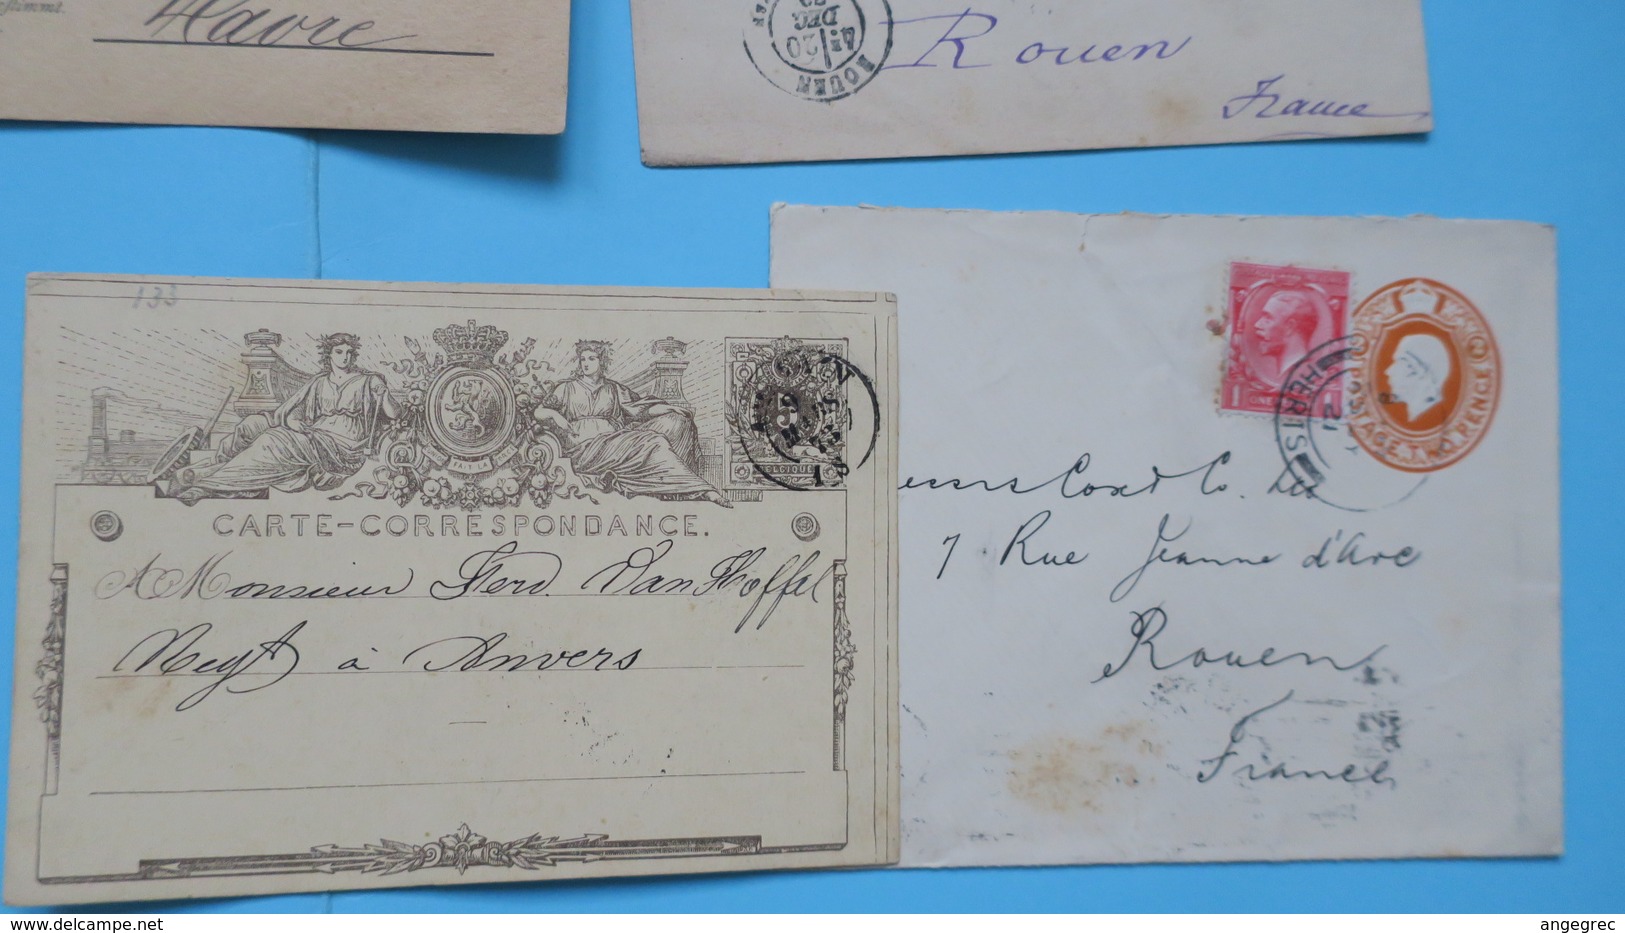 stimmt.
Havre
ROUEN
4E
20
DEC
Rouen
France
133
5
BELGIQUE
ANVERS
6
CARTE-CORRESPONDANCE.
A Monsieur Ferd. Van Hoffel
Negt à Anvers
1
ONE
1
POSTAGE TWO PENCE
essrs Cox & Co. Ltd
7 Rue Jeanne d'Arc
Rouen
France
delcampe.net
angegrec